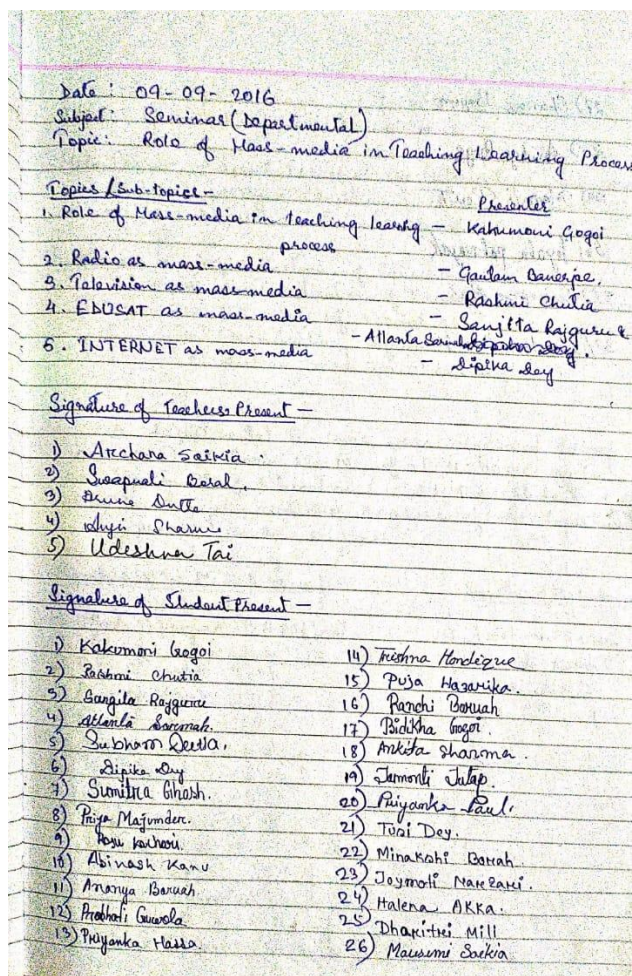 Date : 09-09-2016
Subject : Seminar (Departmental)
Topic : Role of Mass-media in Teaching Learning Process
Topics / Sub-topics - Presenter
1. Role of Mass-media in teaching learng process - Kakumoni Gogoi
2. Radio as mass-media - Gautam Banerjee.
3. Television as mass-media - Rashmi Chutia
4. EDUSAT as mass-media - Sanjita Rajguru &
- Atlanta
5. INTERNET as mass-media - Dipika Dey
Signature of Teachers Present -
1) Archana Saikia
2) Swapnali Boral
3) Dutta
4) Sharma
5) Udeshna Tai
Signature of Student Present -
1) Kakumoni Gogoi
2) Rashmi Chutia
3) Sangita Rajguru
4) Atlanta Sarmah.
5) Subham Dutta.
6) Dipika Dey
7) Sumitra Ghosh.
8) Priya Majumder.
9) Kachari.
10) Abinash Kanu
11) Ananya Baruah
12) Prabhati Guwala
13) Priyanka Hassa
14) Trishna Handique
15) Puja Hazarika.
16) Panchi Boruah
17) Bidikha Gogoi.
18) Ankita Sharma.
19)
20) Priyanka Paul.
21) Tusi Dey.
22) Minakshi Borah
23) Joymoti Narzari.
24) Halena AKKa.
25) Dharitri Mill
26) Mausumi Saikia